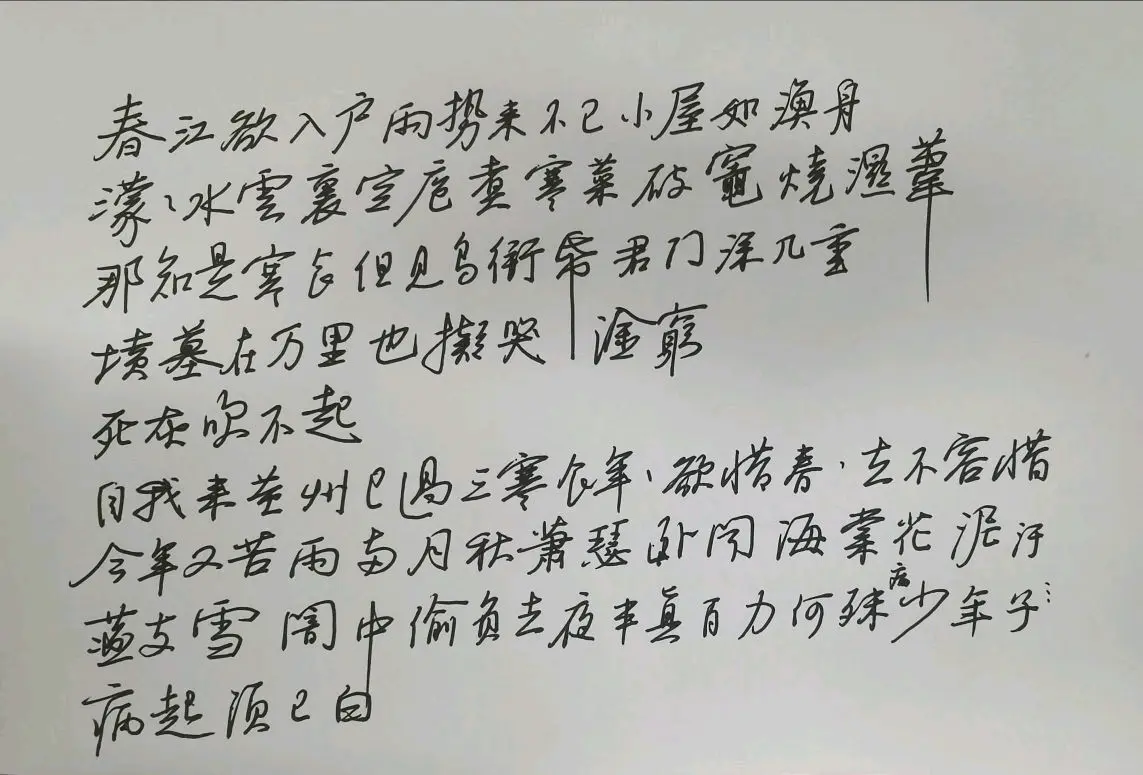 春江欲入户雨势来不已小屋如渔舟
濛〻水雲裏空庖煮寒菜破竈燒濕葦
那知是寒食但見烏銜帋君门深九重
墳墓在万里也擬哭塗窮
死灰吹不起
自我来黄州已過三寒食年〻欲惜春〻去不容惜
今年又苦雨两月秋蕭瑟卧闻海棠花泥汙
燕支雪闇中偷負去夜半真有力何殊病少年子⋮
病起須已白